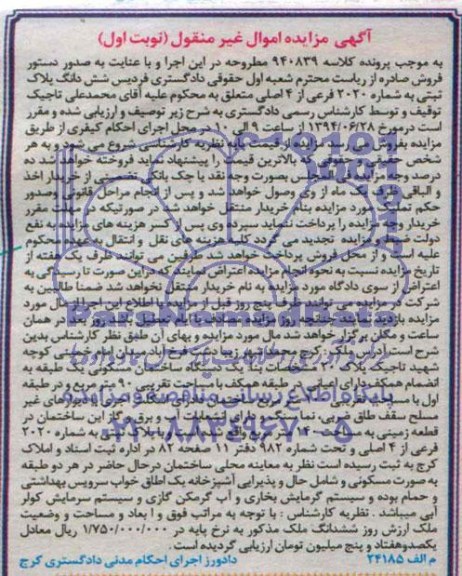 آگهی مزایده اموال غیر منقول (نوبت اول)
به موجب پرونده کلاسه ۹۴۰۸۳۹ مطروحه در این اجرا و با عنایت به صدور دستور
فروش صادره از ریاست محترم شعبه اول حقوقی دادگستری فردیس شش دانگ پلاک
ثبتی به شماره ۲۰۲۰ فرعی از ۴ اصلی متعلق به محکوم علیه آقای محمدعلی تاجیک
توقیف و توسط کارشناس رسمی دادگستری به شرح زیر توصیف و ارزیابی شده و مقرر
است درمورخ ۱۳۹۴/۰۶/۲۸ از ساعت ۹ الی ۱۰ در محل اجرای احکام کیفری از طریق
مزایده بفروش برسد مزایده از قیمت پایه نظریه کارشناسی شروع می شود و به هر
شخص حقیقی یا حقوقی که بالاترین قیمت را پیشنهاد نماید فروخته خواهد شد ده
درصد وجه مزایده فی المجلس بصورت وجه نقد یا چک بانکی تضمینی از خریدار اخذ
و الباقی ظرف یک ماه از وی وصول خواهد شد و پس از انجام مراحل قانونی وصدور
حکم تملیک مورد مزایده بنام خریدار منتقل خواهد شد در صورتیکه در مهلت مقرر
خریدار وجه مزایده را پرداخت ننماید سپرده وی پس از کسر هزینه های مزایده به نفع
دولت ضبط و مزایده تجدید می گردد کلیه هزینه های نقل و انتقال به عهده محکوم
علیه است و از محل فروش پرداخت خواهد شد طرفین می توانند ظرف یک هفته از
تاریخ مزایده نسبت به نحوه انجام مزایده اعتراض نمایند که در این صورت تا رسیدگی به
اعتراض از سوی دادگاه مورد مزایده به نام خریدار منتقل نخواهد شد ضمنا طالبین به
شرکت در مزایده می توانند ظرف پنج روز قبل از مزایده با اطلاع این اجرا از مال مورد
مزایده بازدید نمایند چنانچه روز مزایده مصادف با ایام تعطیل باشد روز بعد در همان
ساعت و مکان برگزار خواهد شد مال مورد مزایده و بهای آن طبق نظر کارشناس بدین
شرح است آدرس ملک: کرج
شهید تاجیک پلاک ۲۰ مشخصات بنا: یک دستگاه ساختمان مسکونی یک طبقه به
انضمام همکف دارای اعیانی در طبقه همکف با مساحت تقریبی ۹۰ متر مربع و در طبقه
اول با مساحت
مسلح سقف طاق ضربی نما سنگ و دارای انشعابات آب و برق و گاز این ساختمان در
قطعه زمینی به مساحت ۱۴۰ متر مربع پلاک ثبتی به شماره ۲۰۲۰
فرعی از ۴ اصلی و تحت شماره ۹۸۲ دفتر ۱۱ صفحه ۸۲ در اداره ثبت اسناد و املاک
کرج به ثبت رسیده است نظر به معاینه محلی ساختمان درحال حاضر در هر دو طبقه
به صورت مسکونی و شامل حال و پذیرایی آشپزخانه یک اطاق خواب سرویس بهداشتی
و حمام بوده و سیستم گرمایش بخاری و آب گرمکن گازی و سیستم سرمایش کولر
آبی میباشد. نظریه کارشناس: با توجه به مراتب فوق و ابعاد و مساحت و وضعیت
ملک ارزش روز ششدانگ ملک مذکور به نرخ پایه در ۱/۷۵۰/۰۰۰/۰۰۰ ریال معادل
یکصدوهفتاد و پنج میلیون تومان ارزیابی گردیده است.
م الف ۲۴۱۸۵ دادورز اجرای احکام مدنی دادگستری کرج
پایگاه اطلاع رسانی مناقصه و مزایده
۰۲۱-۸۸۳۴۹۶۷۰-۵